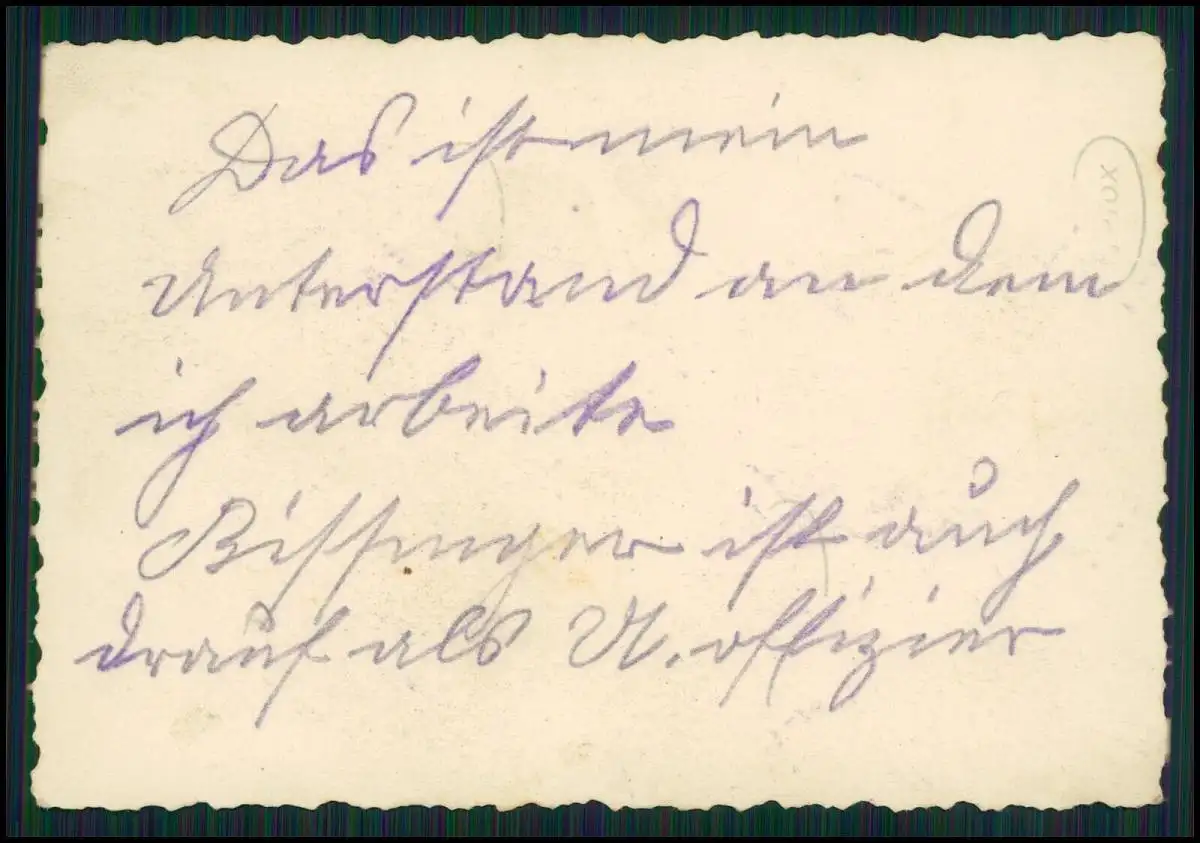 Das ist mein
Unterstand an dem
ich arbeite
Bissinger ist auch
drauf als U. offizier